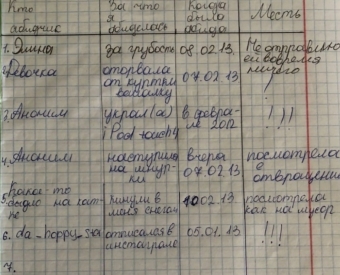 Кто обидчик | За что я обиделась | Когда была обида | Месть
1. Элина | за грубость | 08.02.13. | Не отправляю ей вовремя ничего
2. Девочка | оторвала от куртки | 07.02.13 | !
3. Аноним | украл(а) iPod touchу | в февра-ле 2012 | !!!
4. Аноним | наступила на шнур-ки | вчера 07.02.13 | посмотрела с отвращени
5. какое-то быдло на кат-ке | кинули в меня снегом | 10.02.13. | посмотрела как на мусор
6. da_happy_sta | отписался в инстаграме | 05.01.13 | !!!
7.